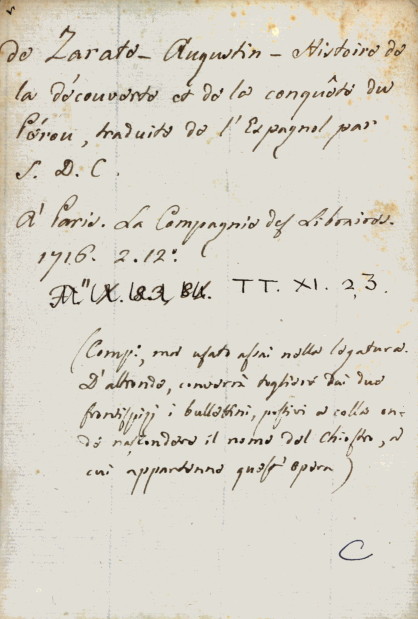 de Zarate - Augustin - Histoire de
la découverte et de la conquête du
Pérou, traduite de l'Espagnol par
S. D. C.
A' Paris. La Compagnie des Libraires.
1716. 2. 12°.
TT. XI. 2, 3.
(Comp:, ma usato assai nella legatura.
D'altronde, converrà togliere dai due
frontispizj i bullettini, postivi a colla on-
de nascondere il nome del Chiostro, a
cui appartenne quest' opera)
C